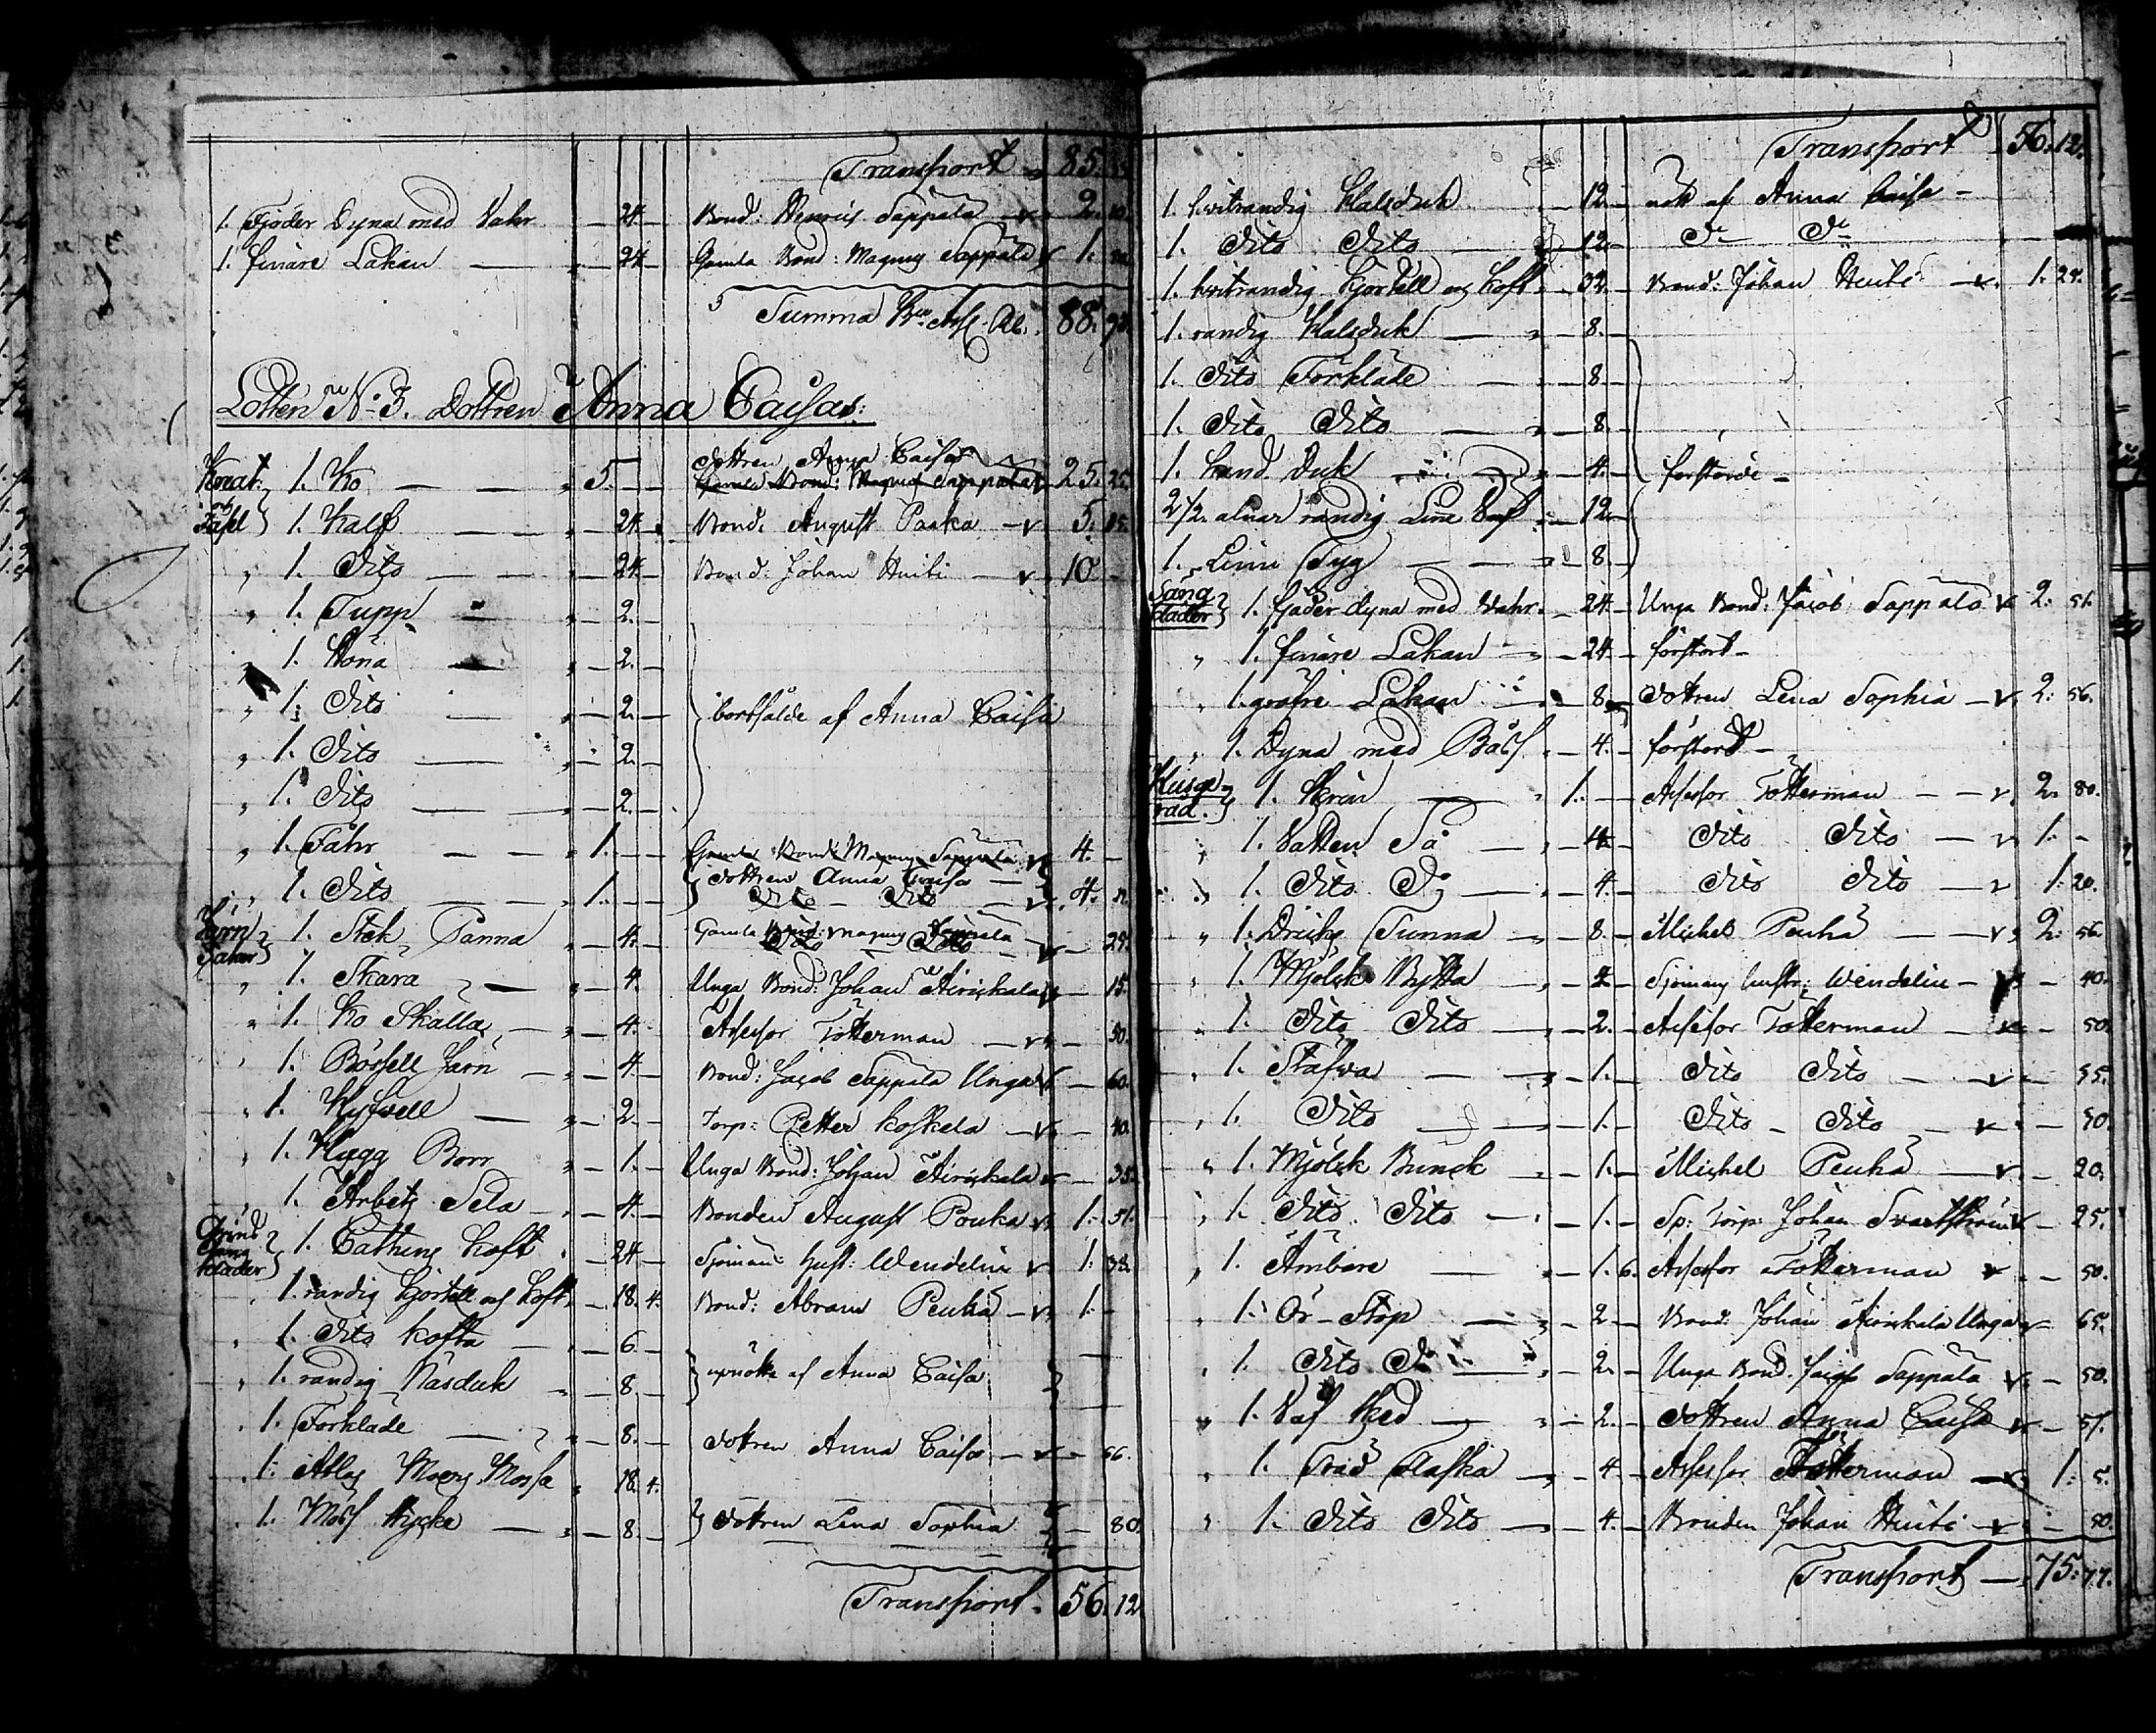 Transport 85.
1. Fjäder Dyna med Vahr — 24 — Bond: Henric Sappala — v 2. 10.
1. finare Lakan — 24 — Gamla Bond: Magnus Sappala v 1.
Summa Ass. 88. 90.
Lotten No 3. Dottren Anna Caisas:
Kreat: 1. Ko — 5. — Dottren Anna Caisa
Gamla Bond: Magnus Sappala 25. 25.
Fäfel 1. Kalf — 24. Bond: August Paaka — v 5.
" 1. Dito — 24 — Bond: Johan Huiti — v 10. —
" 1. Tupp — 2. —
" 1. Höna — 2. —
" 1. Dito — 2. — bortsålde af Anna Caisa
" 1. Dito — 2. —
" 1. Dito — 2. —
" 1. Fåhr — 1. — Gamla Bond: Magnus Sappala v 4. —
Dottren Anna Caisa —
" 1. Dito — 1. — Dito — Dito — v 4.
Järn Saker 1. Stek Panna — 4. — Gamla Bond: Magnus Sappala
Dito — Dito — v — 29.
" 1. Skara — 4. Unga Bond: Johan Airikkala v — 15.
" 1. Ko Skälla — 4. — Assessor Totterman — v — 30.
1. Börsell Järn — 4. — Bond: Jacob Sappala Unga v — 60.
" 1. Hyfvell — 2. — Torp: Petter Koskela — v — 40.
" 1. Hugg Borr — 1. — Unga Bond: Johan Airikkala v — 35.
1. Arbets Sela — 4. — Bonden August Pouka v 1. 51.
Qvins Gång kläder 1. Cattuns Koft — 24 — Sjöman: Hust: Wendelin v 1. 38.
1. randig Kjortell och Koft — 18. 4. Bond: Abram Penkä — v 1. —
" 1. Dito Kofta — 6 —
" 1. randig Näsduk — 8 — af Anna Caisa
" 1. Förkläde — 8. — Dottren Anna Caisa — v — 66.
1. Atlas Mössa 18. 4.
1. Möss Stycke — 8. — Dottren Lena Sophia — 80.
Transport. 56. 12.
Transport 56. 12.
1. hvitrandig Halsduk — 12 — nött af Anna Caisa —
1. Dito Dito — 12 — Do Do
1. hvitrandig Kjortell och Koft — 32 — Bond: Johan Huiti — v 1. 25.
1. randig Halsduk — 8. —
1. Dito Förkläde — 8. —
1. Dito Dito — 8. —
1. Hand Duk — 4. — förstörde —
2 1/2 alnar randig Linne Väf — 12. —
1. Linne Tyg — 8.
Säng kläder 1. fjäder dyna med Vahr — 24 — Unga Bond: Jacob Sappala v 2. 51.
" 1. finare Lakan — 24 — förstört —
" 1. gröfre Lakan — 8. — Dottren Lena Sophia — v 2. 56.
" 1. Dyna med Båss — 4. — förstört —
Husge= råd. 1. Skrin — 1. — Assessor Totterman — v 2. 80.
1. Vatten Så — 4 — Dito Dito — v 1. —
1. Dito Do — 4. — Dito Dito — v 1. 20.
" 1. Dricks Tunna — 8. — Michel Penkä — v 2. 56.
1. Mjölck Bytta — 4 — Sjömans hustr: Wendelin — v — 40.
1. Dito Dito — 2. — Assessor Totterman — v — 50.
1. Stäfva — 1. — Dito Dito — v — 55.
1. Dito — 1. — Dito — Dito — v — 50.
" 1. Mjölck Bunck — 1. — Michel Penkä — v — 20.
1. Dito Dito — 1. — Sp: Torp: Johan Svartström v — 25.
" 1. Ämbare — 1. 6. Assessor Totterman v — 50.
1. Ör-Stop — 2 — Bond: Johan Airikkala Unga v — 65.
" 1. Dito Do — 2. — Unga Bond: Jacob Sappala v — 50.
" 1. Väf Sked — 2. — Dottren Anna Caisa v — 51.
" 1. Träd Flaska — 4 — Assessor Totterman — v 1. 5.
" 1. Dito Dito — 4. — Bonden Johan Huiti — v — 50.
Transport — 75. 77.